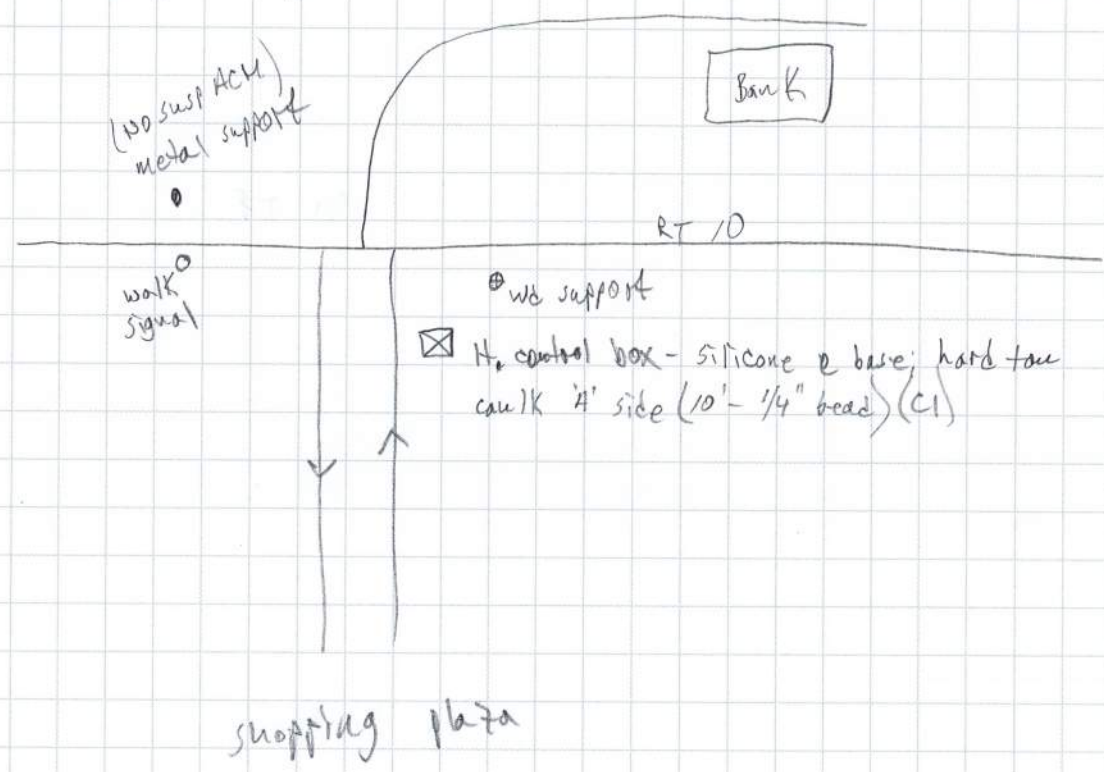 (No susp ACM)
metal support
Bank
RT 10
walk
signal
wd support
H. control box - silicone @ base; hard tan
caulk 'A' side (10' - 1/4" bead) (C1)
shopping plaza